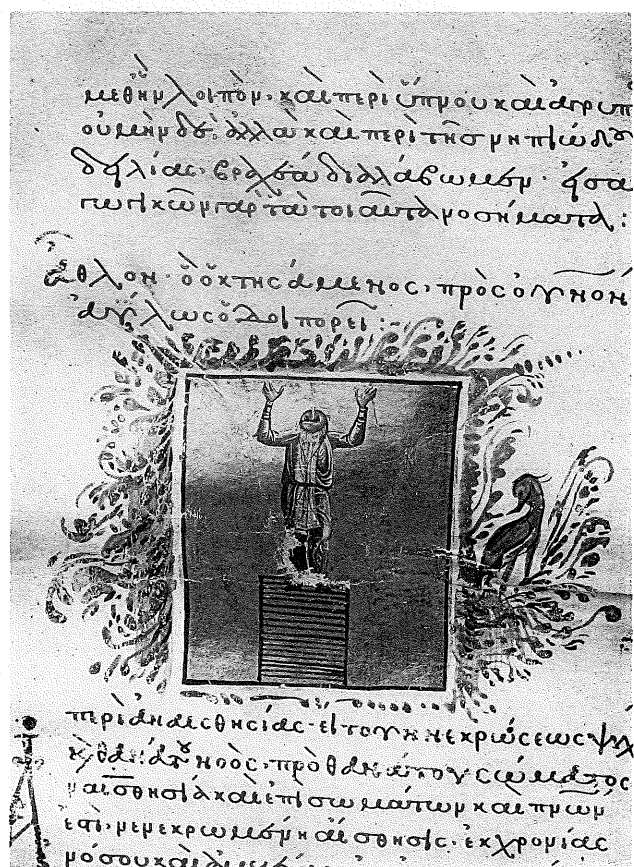 λοιπὸν· καὶ περὶ ὕπνου καὶ ἀγρυπ
οὐ μὴν δὲ· ἀλλὰ καὶ περὶ τῆς νηπιώδου
δειλίας· βραχέα διαλάβωμεν·
γὰρ τὰ τοιαῦτα νοσήματα:
ἆθλον· ὃ ὁ κτησάμενος· πρὸς
ἀΰλως ὁδοιπορεῖ:
περὶ ἀναισθησίας· εἴτουν νεκρώσεως ψυχ
θανάτου νοὸς· πρὸ θανάτου σώματος
ναισθησία καὶ ἐπὶ σωμάτων καὶ πνων
ἐστὶ· νενεκρωμένη αἴσθησις· ἐκ χρονίας
νόσου καὶ